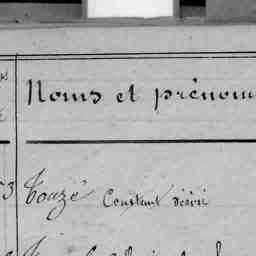 Noms et prénom
3 Touzé Constant Désiré